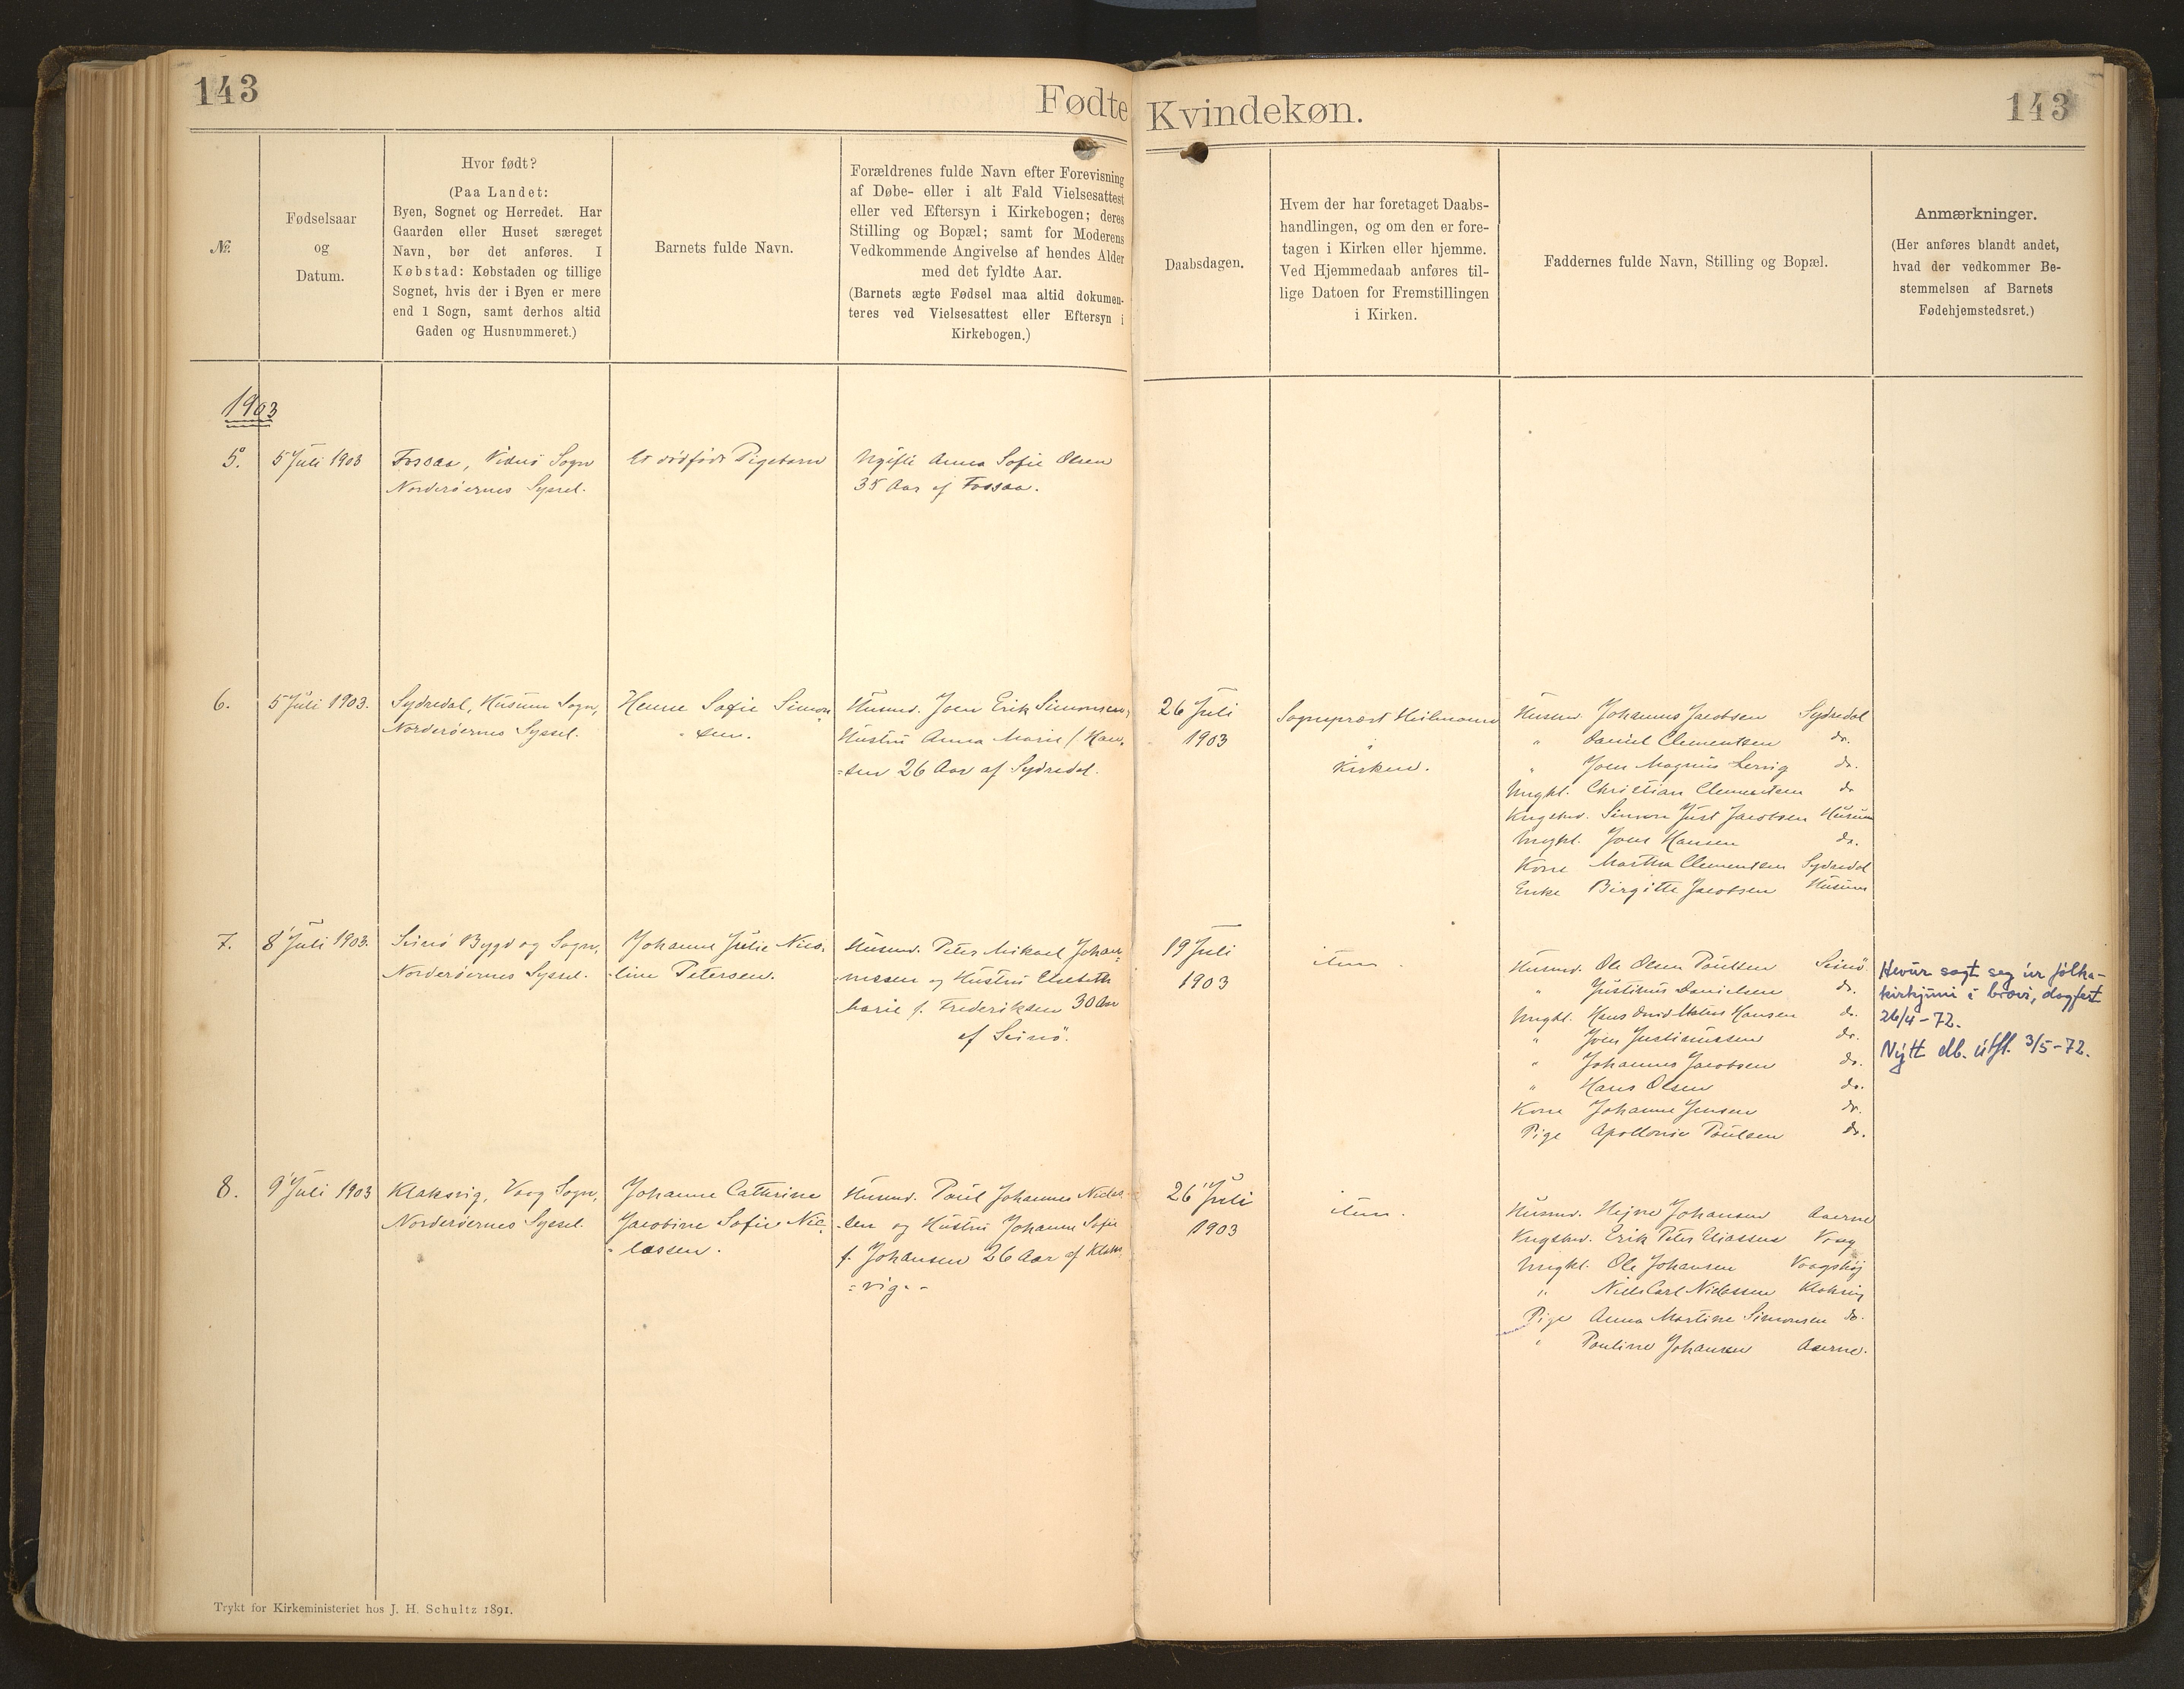 143
Fødte
Kvindekøn.
143
№.
Fødselsaar
og
Datum.
Hvor født?
(Paa Landet:
Byen, Sognet og Herredet. Har
Gaarden eller Huset særeget
Navn, bør det anføres. I
Købstad: Købstaden og tillige
Sognet, hvis der i Byen er mere
end 1 Sogn, samt derhos altid
Gaden og Husnummeret.)
Barnets fulde Navn.
Forældrenes fulde Navn efter Forevisning
af Døbe- eller i alt Fald Vielsesattest
eller ved Eftersyn i Kirkebogen; deres
Stilling og Bopæl; samt for Moderens
Vedkommende Angivelse af hendes Alder
med det fyldte Aar.
(Barnets ægte Fødsel maa altid dokumen-
teres ved Vielsesattest eller Eftersyn i
Kirkebogen.)
Daabsdagen.
Hvem der har foretaget Daabs-
handlingen, og om den er fore-
tagen i Kirken eller hjemme.
Ved Hjemmedaab anføres til-
lige Datoen for Fremstillingen
i Kirken.
Faddernes fulde Navn, Stilling og Bopæl.
Anmærkninger.
(Her anføres blandt andet,
hvad der vedkommer Be-
stemmelsen af Barnets
Fødehjemstedsret.)
1903
5.
5 Juli 1903
Fossaa, Vidnø Sogn
Norderøernes Syssel.
Et dødfødt Pigebarn
Ugifte Anna Sofie Olsen
35 Aar af Fossaa.
6.
5 Juli 1903.
Sydredal, Husum Sogn,
Norderøernes Syssel.
Henne Sofie Simon
sen.
Husmd. Joen Erik Simonsen,
Hustru Anna Marie f Han-
=sen 26 Aar af Sydredal.
26 Juli
1903
Sognepræst Heilmann
i
Kirken.
Husmd. Johannes Jacobsen Sydredal
" Daniel Clementsen do.
" Joen Magnus Lervig do.
Ungkl. Christian Clementsen do
Kngsbd. Simon Just Jacobsen Husum
Ungkl. Joen Hansen do.
Kone Martha Clementsen Sydredal
Enke Birgitte Jacobsen Husum
7.
8 Juli 1903.
Svinø Bygd og Sogn,
Norderøernes Syssel.
Johanne Julie Nico-
line Petersen.
Husmd. Peter Mikael Johan-
nessen og Hustru Elsebeth
Marie f. Frederiksen 30 Aar
af Svinø.
19 Juli
1903
item
Husmd. Ole Olsen Poulsen Svinø
" Justinus Danielsen do.
Ungkl. Hans David Matras Hansen do.
" Joen Justinussen do.
" Johannes Jacobsen do.
" Hans Olsen do.
Kone Johanne Jensen do.
Pige Apollonie Poulsen do.
Hevur sagt seg úr fólka-
kirkjuni í brævi, dagfest
26/4-72.
Nýtt db. útfl. 3/5-72.
8.
9 Juli 1903
Klaksvig, Vaag Sogn,
Norderøernes Syssel.
Johanne Cathrine
Jacobine Sofie Nic-
lassen.
Husmd. Poul Johannes Niclas-
sen og Hustru Johanne Sofie
f. Johansen 26 Aar af Klaks
=vig.-
26 Juli
1903
item.
Husmd. Hejne Johansen Aaerne
Kngsbd. Erik Peter Eliassen Vaag
Ungkl. Ole Johansen Vaagshøj
" Niels Carl Niclassen Klaksvig
Pige Anna Martine Simonsen do.
" Pauline Johansen Aaerne.
Trykt for Kirkeministeriet hos J. H. Schultz 1891.